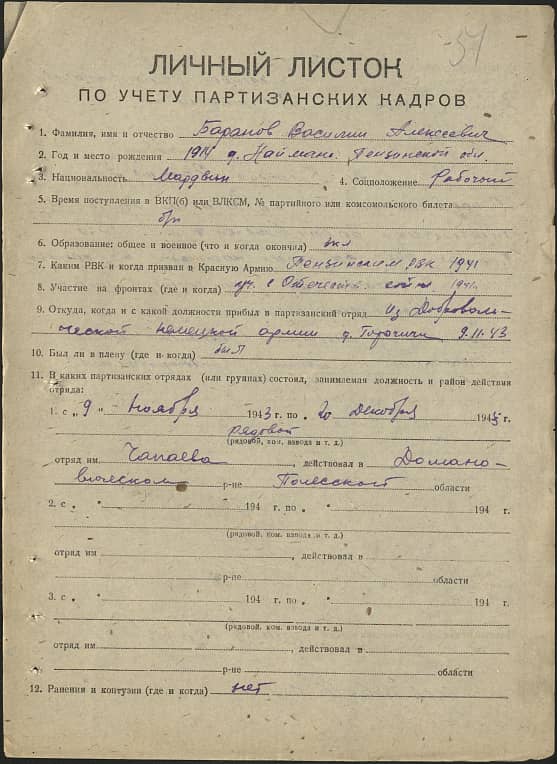 57
ЛИЧНЫЙ ЛИСТОК
ПО УЧЕТУ ПАРТИЗАНСКИХ КАДРОВ
1. Фамилия, имя и отчество Баранов Василий Алексеевич
2. Год и место рождения 1914 д. Найман Пензинской обл.
3. Национальность Мардвин 4. Соцположение Рабочий
5. Время поступления в ВКП(б) или ВЛКСМ, № партийного или комсомольского билета
б/п
6. Образование: общее и военное (что и когда окончил)
7. Каким РВК и когда призван в Красную Армию Пензинским РВК 1941
8. Участие на фронтах (где и когда) уч. в Отечеств. войны 1941
9. Откуда, когда и с какой должности прибыл в партизанский отряд Из Доброволь-
ческой немецкой армии д. 9.11.43
10. Был ли в плену (где и когда) был
11. В каких партизанских отрядах (или группах) состоял, занимаемая должность и район действия
отряда:
1. с „ 9 " ноября 1943 г. по „ 20 декабря 1943 г.
рядовой
(рядовой, ком. взвода и т. д.)
отряд им Чапаева, действовал в Домано-
вическом р-не Полесской области
2. с „ " 194 г. по „ 194 г.
(рядовой, ком. взвода и т. д.)
отряд им , действовал в
р-не области
3. с „ " 194 г. по „ 194 г.
(рядовой, ком. взвода и т. д.)
отряд им , действовал в
р-не области
12. Ранения и контузии (где и когда) нет